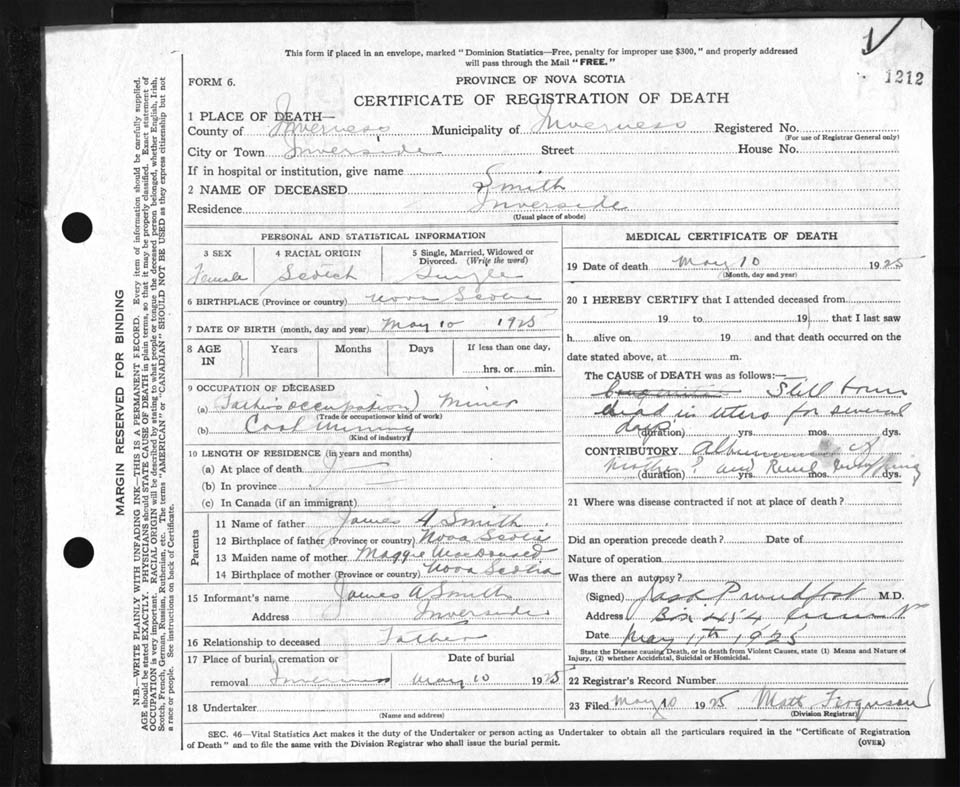 This form if placed in an envelope, marked "Dominion Statistics—Free, penalty for improper use $300," and properly addressed
will pass through the Mail "FREE."
1212
FORM 6.
PROVINCE OF NOVA SCOTIA
CERTIFICATE OF REGISTRATION OF DEATH
1 PLACE OF DEATH—
County of Inverness Municipality of Inverness Registered No.
(For use of Registrar General only)
City or Town Inverside Street House No.
If in hospital or institution, give name
2 NAME OF DECEASED Smith
Residence Inverside
(Usual place of abode)
PERSONAL AND STATISTICAL INFORMATION
3 SEX 4 RACIAL ORIGIN 5 Single, Married, Widowed or
Divorced. (Write the word)
Female Scotch Single
6 BIRTHPLACE (Province or country) Nova Scotia
7 DATE OF BIRTH (month, day and year) May 10 1925
8 AGE IN Years Months Days If less than one day,
hrs. or min.
9 OCCUPATION OF DECEASED
(a) (Father's occupation) Miner
(Trade or occupation or kind of work)
(b) Coal Mining
(Kind of industry)
10 LENGTH OF RESIDENCE (in years and months)
(a) At place of death
(b) In province
(c) In Canada (if an immigrant)
Parents
11 Name of father James A Smith
12 Birthplace of father (Province or country) Nova Scotia
13 Maiden name of mother Maggie MacDonald
14 Birthplace of mother (Province or country) Nova Scotia
15 Informant's name James A Smith
Address Inverside
16 Relationship to deceased Father
17 Place of burial, cremation or Date of burial
removal Inverness May 10 1925
18 Undertaker
(Name and address)
MEDICAL CERTIFICATE OF DEATH
19 Date of death May 10 1925
(Month, day and year)
20 I HEREBY CERTIFY that I attended deceased from
19 to 19 that I last saw
h alive on 19 and that death occurred on the
date stated above, at m.
The CAUSE of DEATH was as follows:—
Still born
dead in utero for several
days
(duration) yrs. mos. dys.
CONTRIBUTORY of
mother? and
(duration) yrs. mos. dys.
21 Where was disease contracted if not at place of death?
Did an operation precede death? Date of
Nature of operation
Was there an autopsy?
(Signed) Proudfoot M.D.
Address Box 454
Date May 11th 1925
State the Disease causing Death, or in death from Violent Causes, state (1) Means and Nature of
Injury, (2) whether Accidental, Suicidal or Homicidal.
22 Registrar's Record Number
23 Filed May 10 1925 Matt Ferguson
(Division Registrar)
SEC. 46—Vital Statistics Act makes it the duty of the Undertaker or person acting as Undertaker to obtain all the particulars required in the "Certificate of Registration
of Death" and to file the same with the Division Registrar who shall issue the burial permit.
(OVER)
MARGIN RESERVED FOR BINDING
N.B.—WRITE PLAINLY WITH UNFADING INK—THIS IS A PERMANENT RECORD. Every item of information should be carefully supplied.
AGE should be stated EXACTLY. PHYSICIANS should STATE CAUSE OF DEATH in plain terms, so that it may be properly classified. Exact statement of
OCCUPATION is very important. RACIAL ORIGIN will be described by stating to what people or tongue the deceased person belonged, whether English, Irish,
Scotch, French, German, Russian, Ruthenian, etc. The terms "AMERICAN" or "CANADIAN" SHOULD NOT BE USED as they express citizenship but not
a race or people. See instructions on back of Certificate.